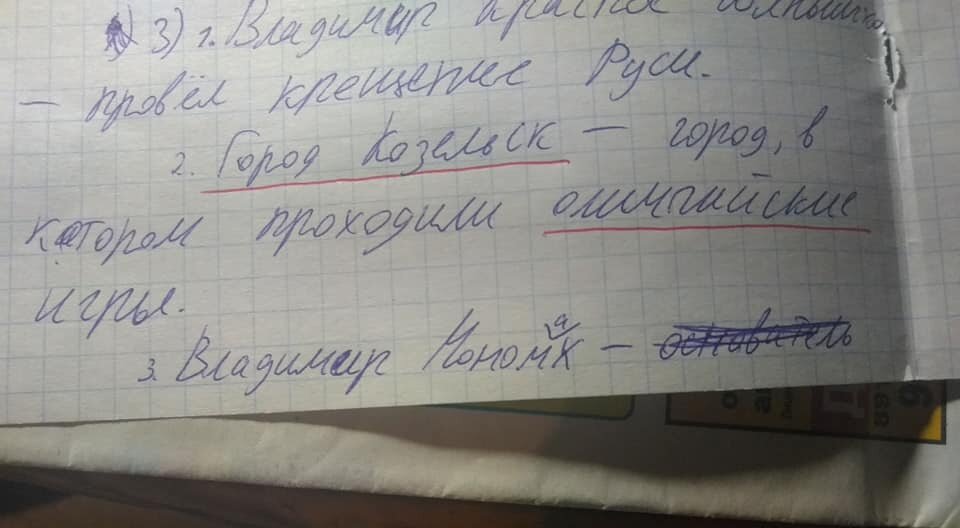 3) 1. Владимир красное солнышко
— провёл крещение Руси.
2. Город Козельск — город, в
котором проходили олимпийские
игры.
3. Владимир Мономах — основатель